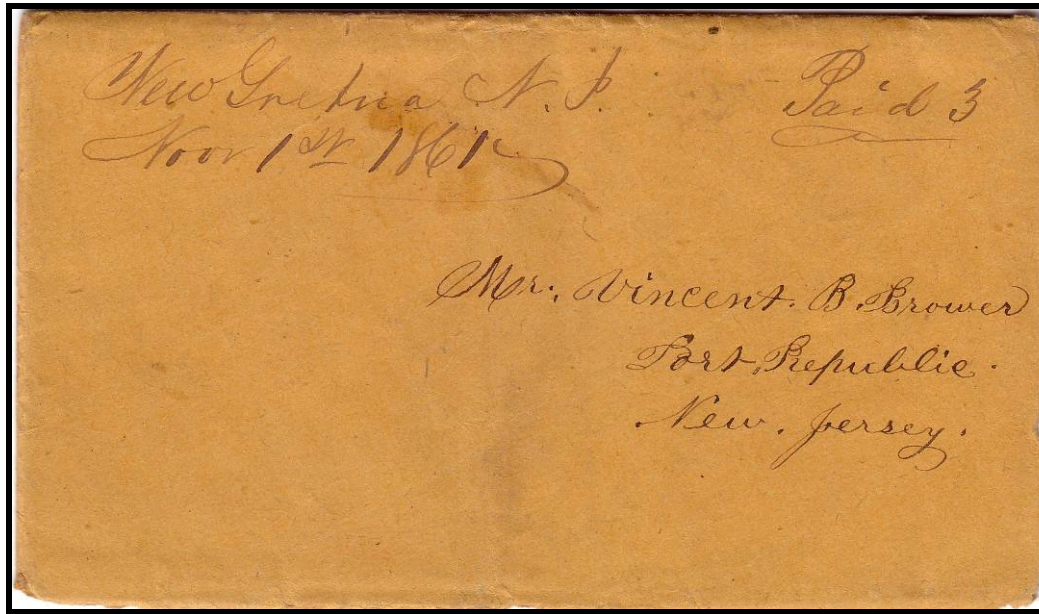 New Gretna N. J.
Paid 3
Nov 1st 1861
Mr. Vincent. B. Brower
Port, Republic.
New. Jersey.